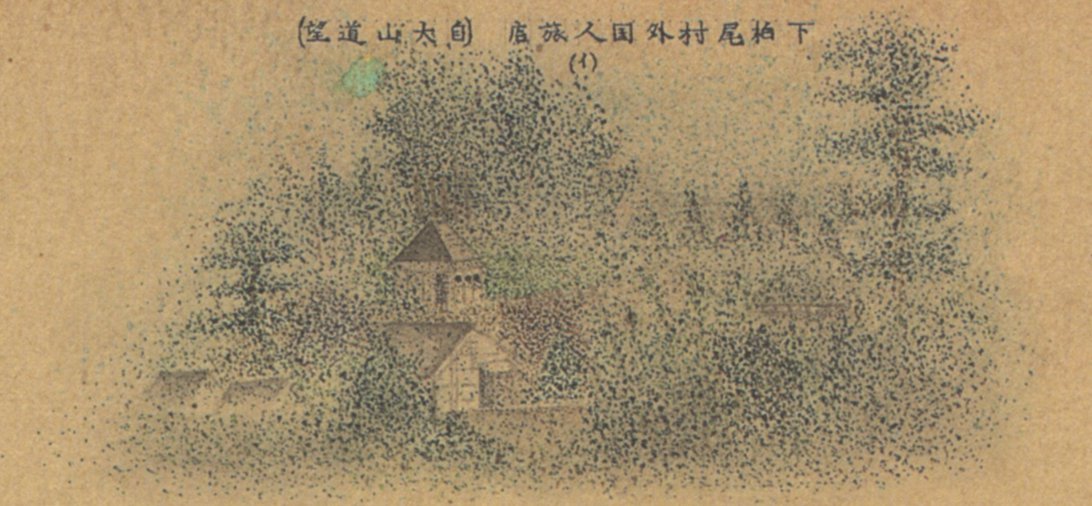 下柏尾村外国人旅店 (自大山道望)
(イ)